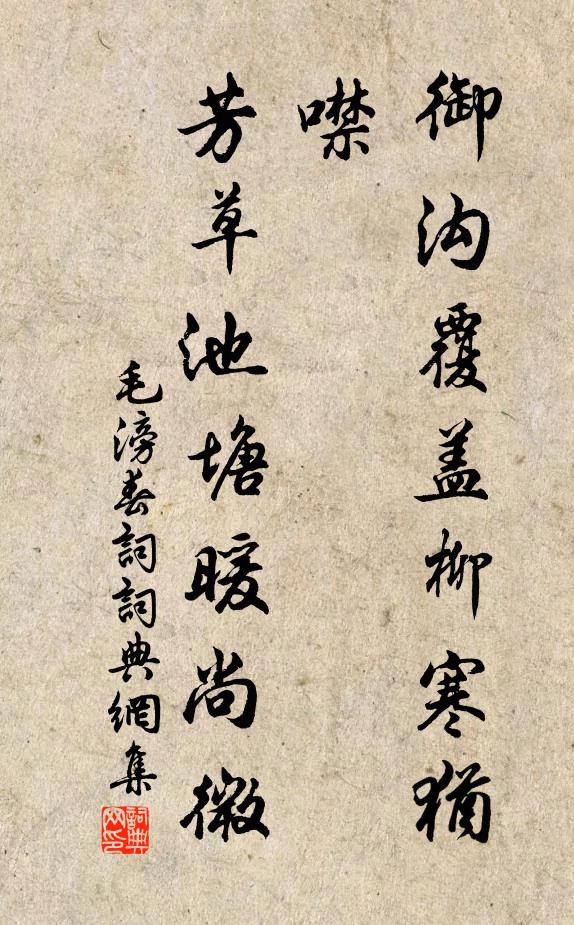 御沟覆盖柳寒犹
噤
芳草池塘暖尚微
毛滂春詞詞典網集
詞典
网印